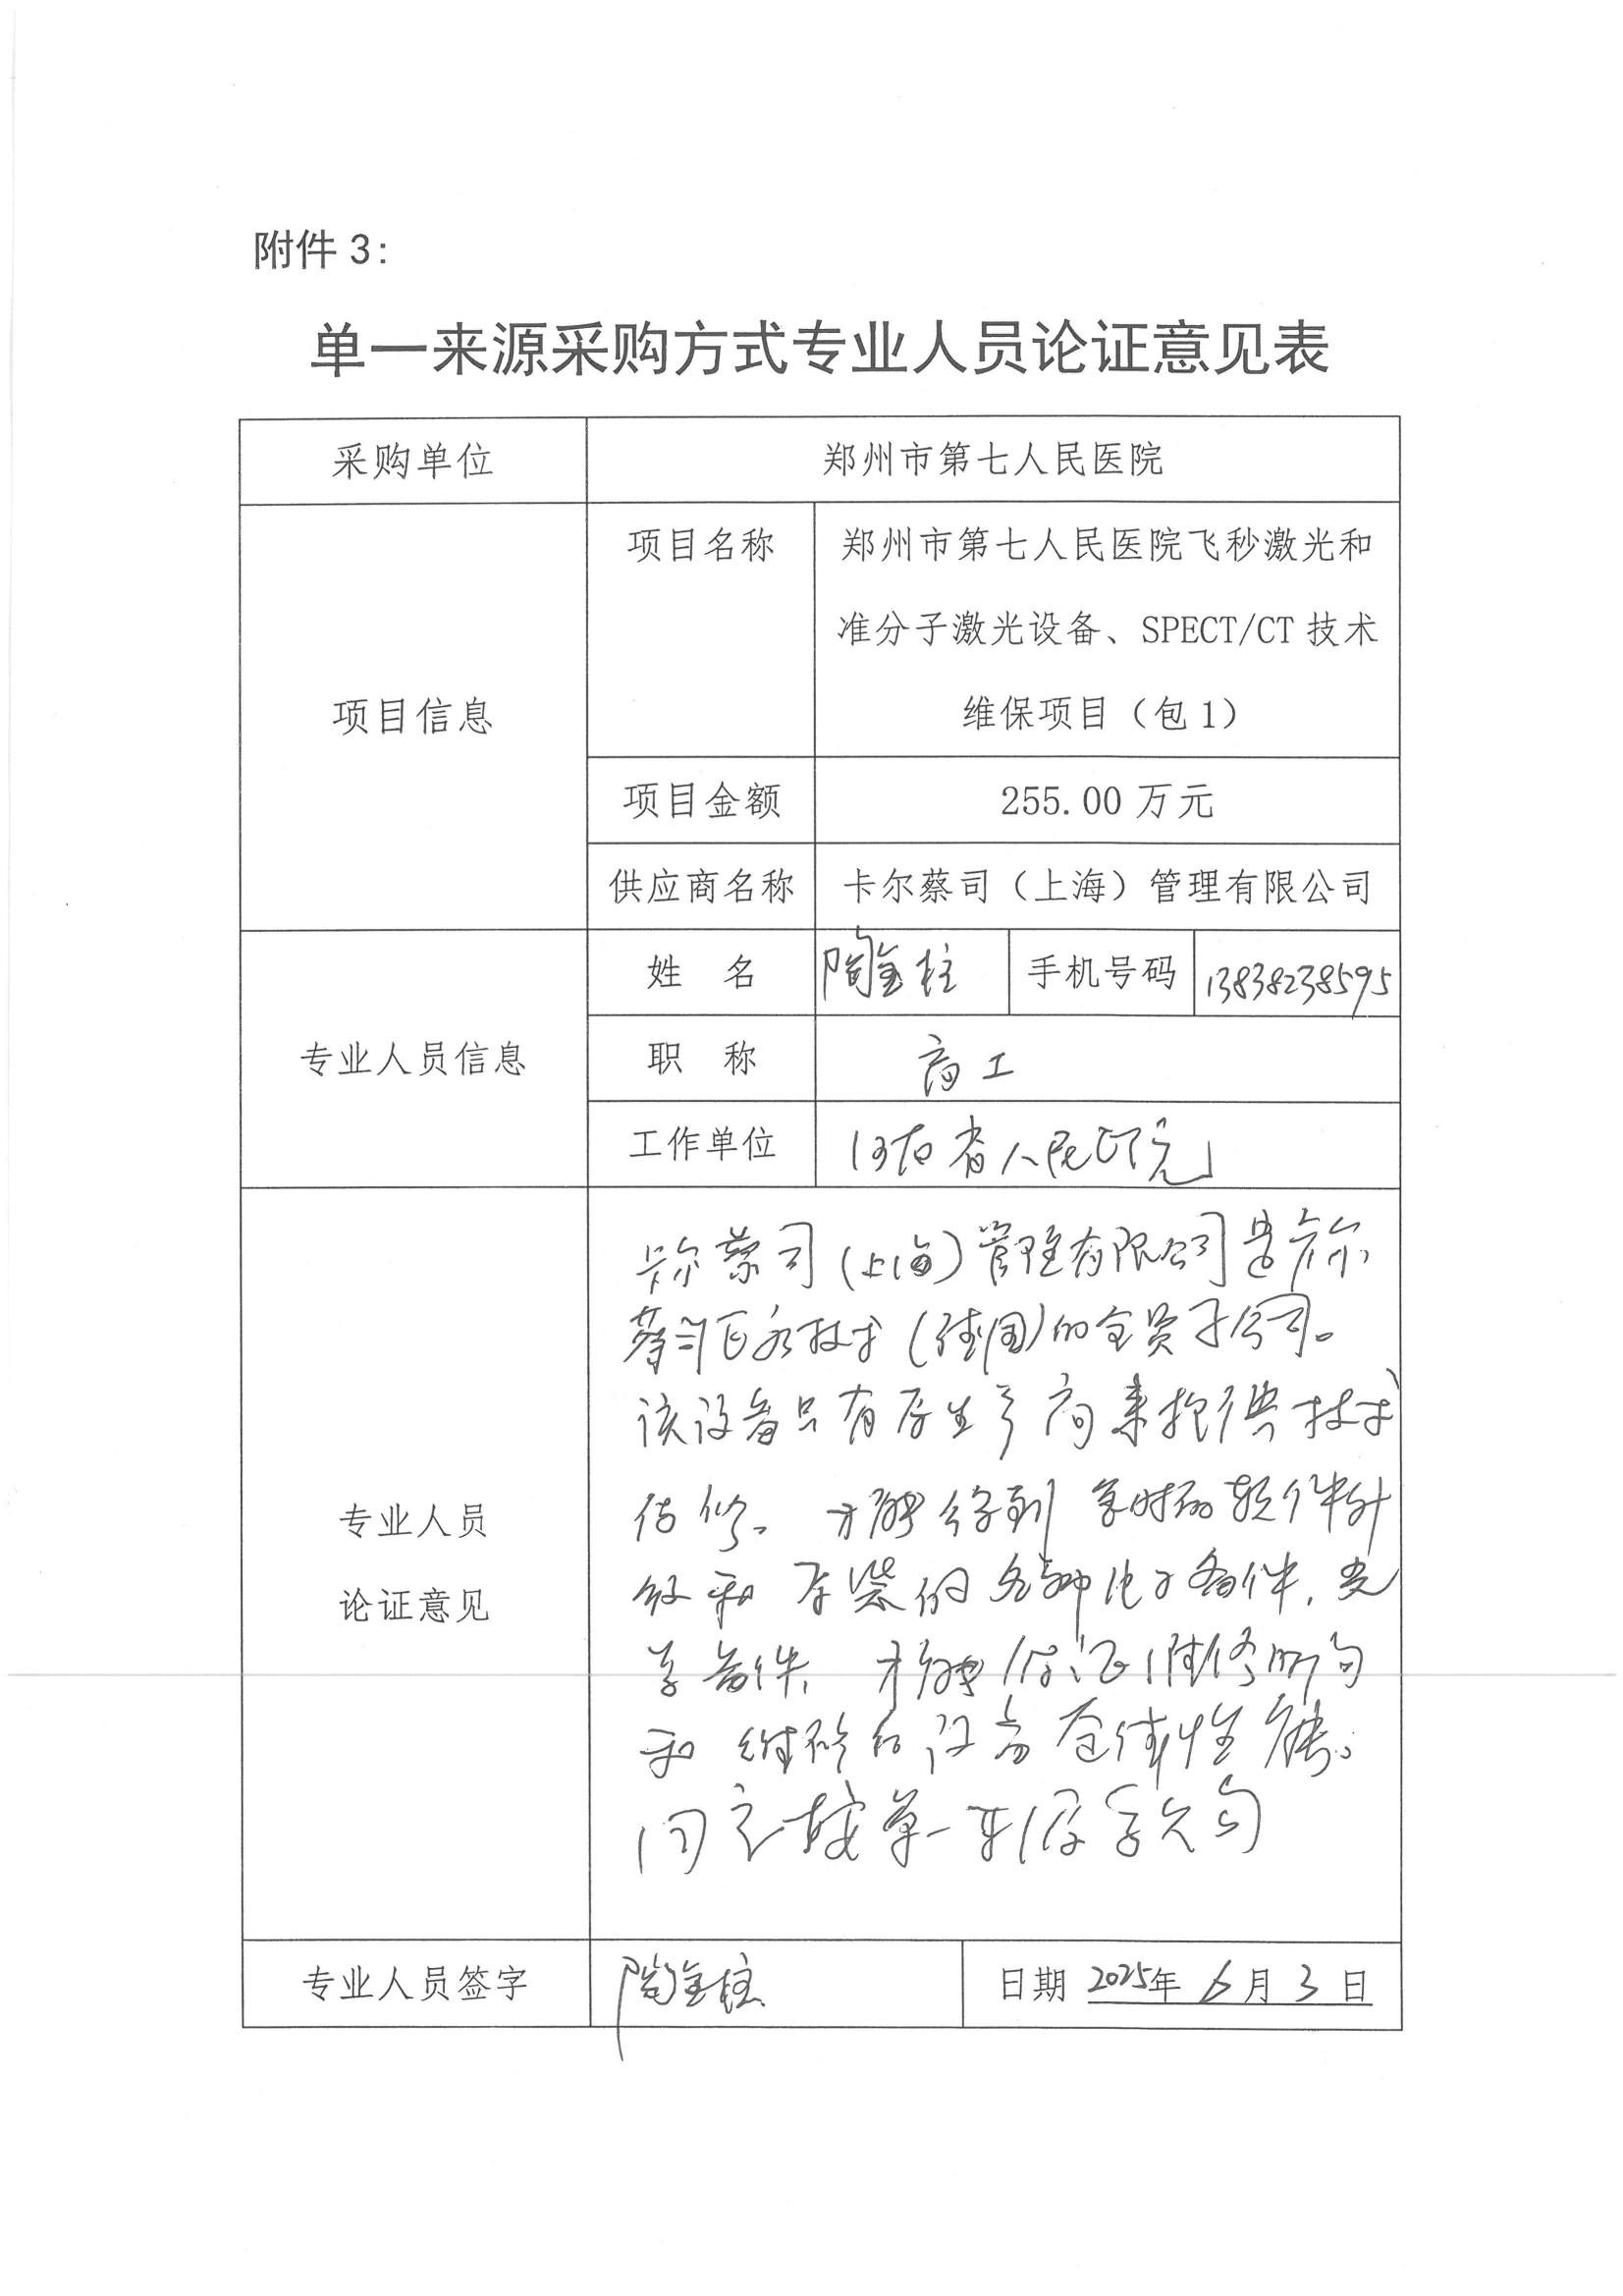 附件 3：
单一来源采购方式专业人员论证意见表
采购单位
郑州市第七人民医院
项目信息
项目名称
郑州市第七人民医院飞秒激光和
准分子激光设备、SPECT/CT 技术
维保项目（包 1）
项目金额
255.00 万元
供应商名称
卡尔蔡司（上海）管理有限公司
专业人员信息
姓 名
陶金柱
手机号码
13838238595
职 称
高工
工作单位
河南省人民医院
专业人员
论证意见
卡尔蔡司(上海)管理有限公司是卡尔
蔡司医疗技术(德国)的全资子公司。
该设备只有原生产商来提供技术
保修。才能得到 的软件升
级和原装的各种电子备件，光
学备件，才能保证维修
和维修后设备 性能。
同意按单一来源采购
专业人员签字
陶金柱
日期 2025年 6月 3日